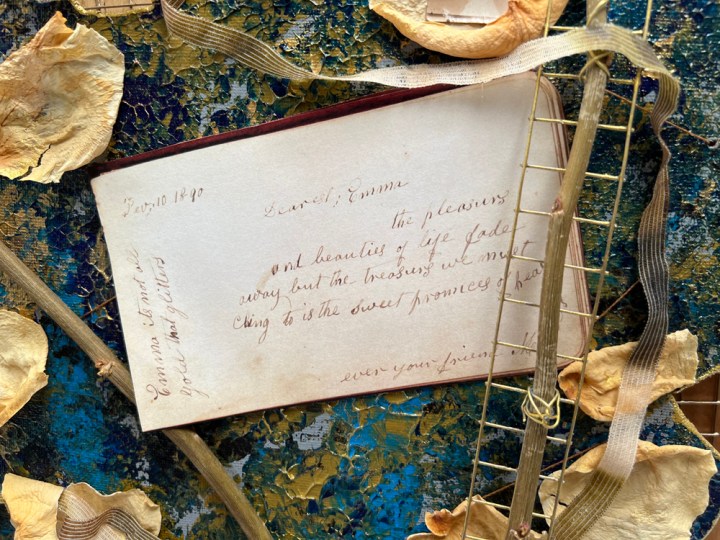 Jan, 10 1890
Dearest, Emma
the pleasures
and beauties of life fade
away but the treasure we must
cling to is the sweet promices of
ever your friend
Emma its not all
gold that glitters